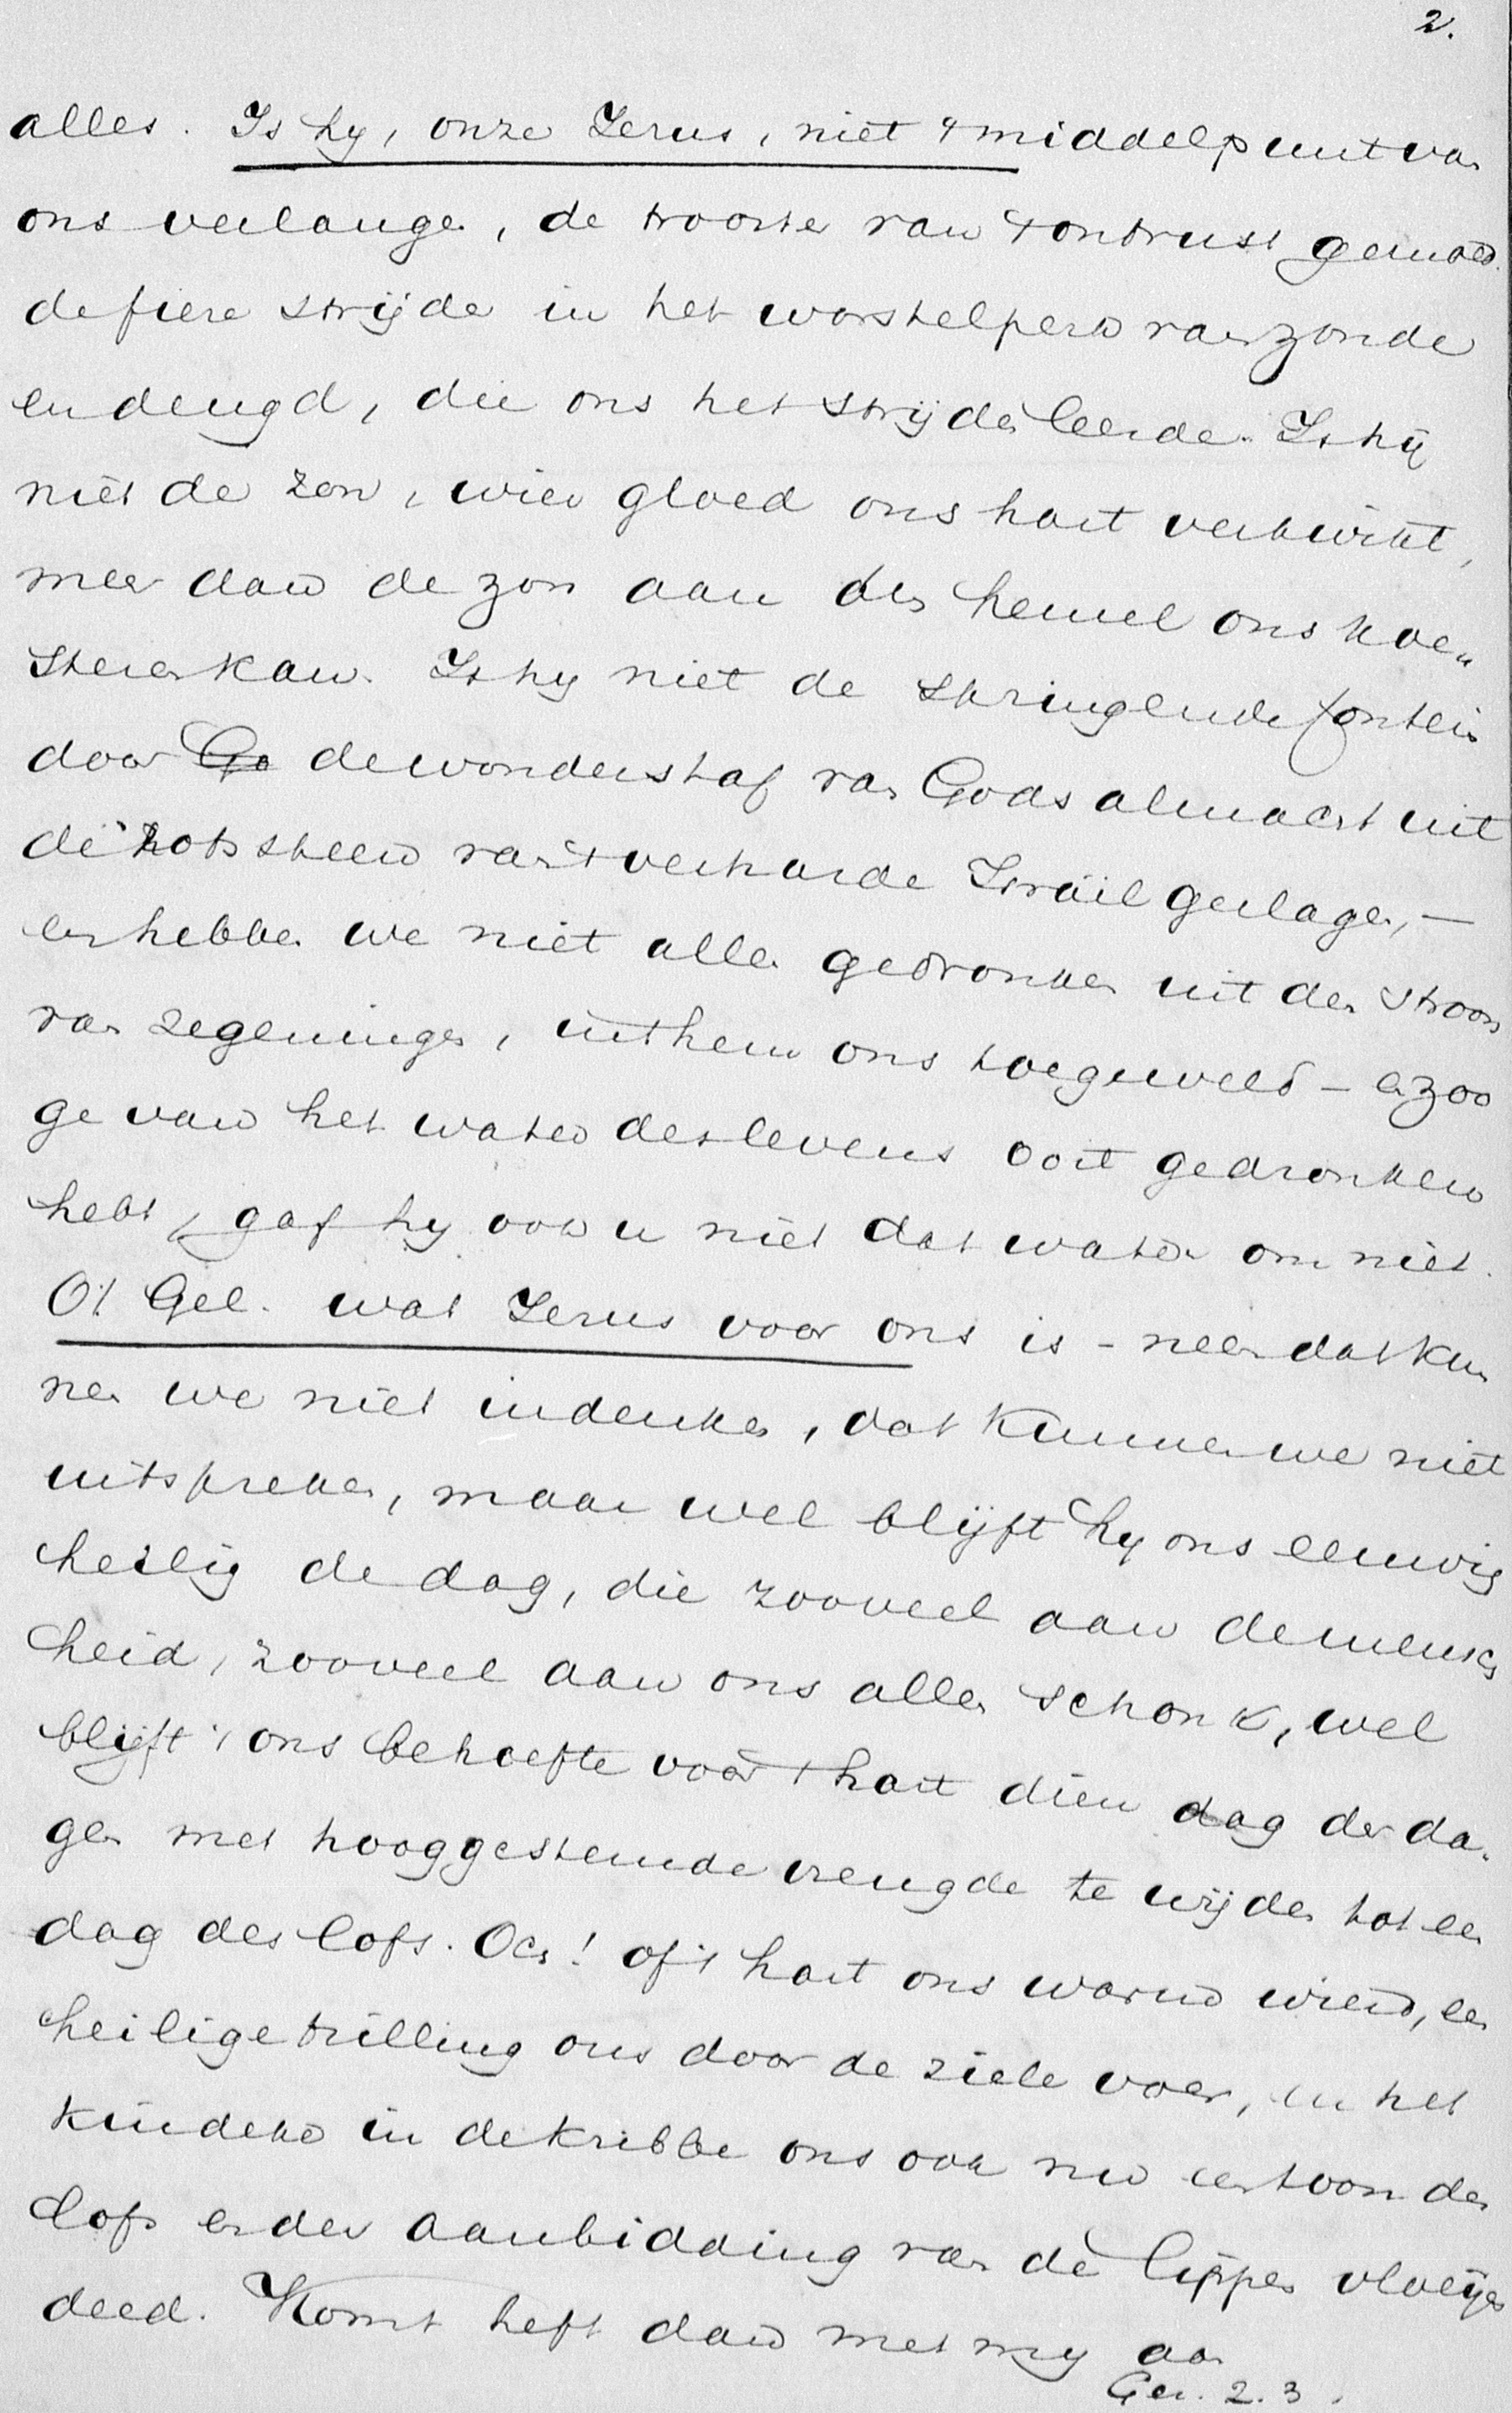 2.
alles. Is hy, onze Jezus, niet 't middelpunt van
ons verlangen, de trooster van 't ontrust gemoed.
de fiere strijder in het worstelperk van zonde
en deugd, die ons het strijden leerde. Is hij
niet de zon, wier gloed ons hart verkwikt,
meer dan de zon aan den hemel ons koe„
steren kan. Is hy niet de springende fontein
door Go de wonderstaf van Gods almacht uit
de rotssteen van 't verharde Israël geslagen, —
en hebben we niet allen gedronken uit den stroom
van zegeningen, uit hem ons toegeweld – en zoo
ge van het water des levens ooit gedronken
hebt, gaf hy ook u niet dat water om niet.
O! Gel. wat Jezus voor ons is – neen dat kun
nen we niet indenken, dat kunnen we niet
uitspreken, maar wel blijft hy ons eeuwig
heilig de dag, die zooveel aan de mensch
heid, zooveel aan ons allen schonk, wel
blijft 't ons behoefte voor 't hart dien dag der da„
gen met hooggestemde vreugde te wijden tot een
dag des lofs. Och! of 't hart ons warm wierd, een
heilige trilling ons door de ziele voer, en het
kindeke in de kribbe ons ook nu een toon des
lofs en der aanbidding van de lippen vloeijen
deed. Komt heft dan met my aan
Gez. 2. 3.